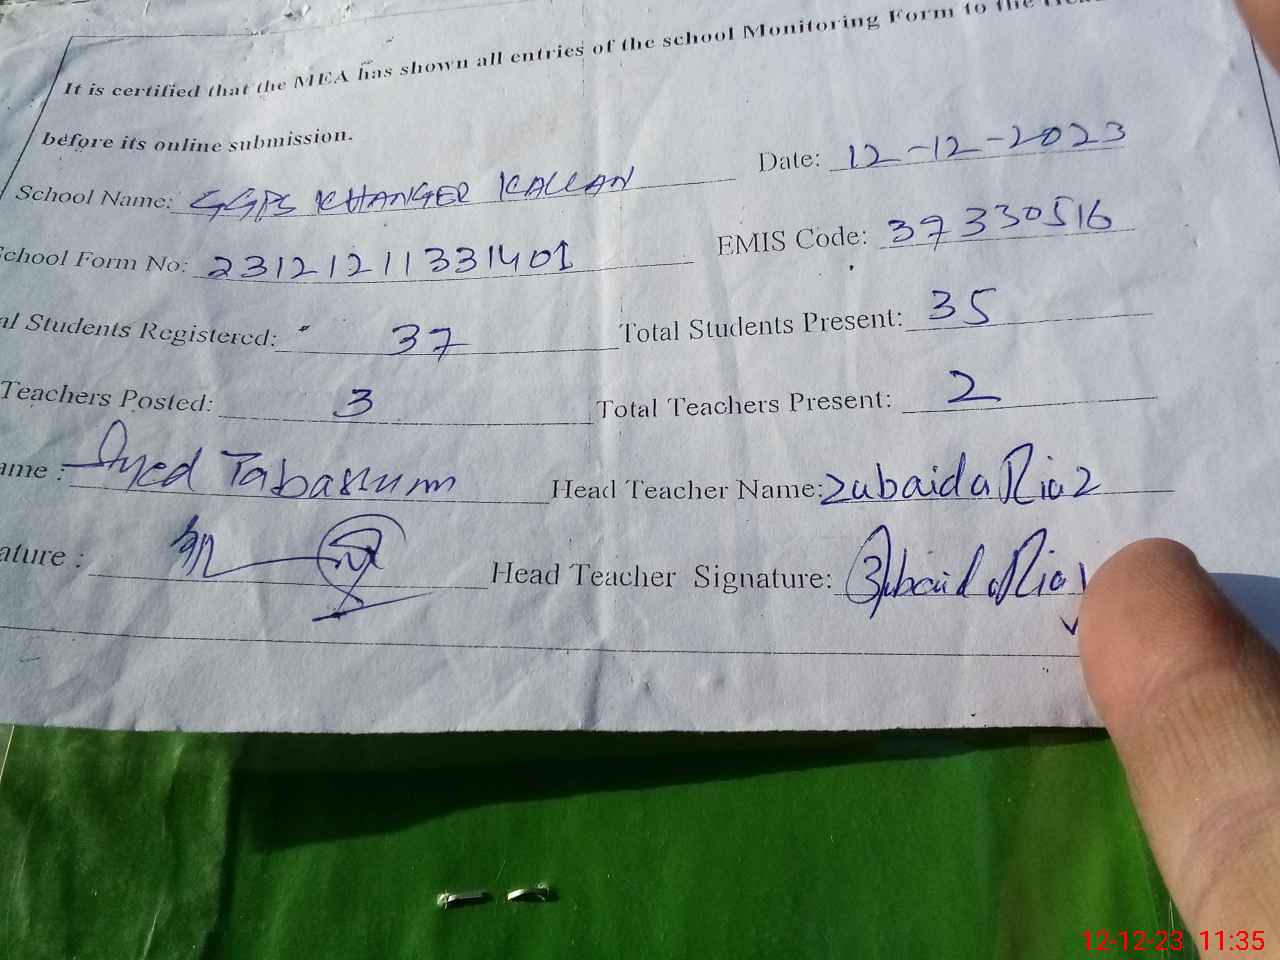 It is certified that the MEA has shown all entries of the school Monitoring Form to the
before its online submission.
Date: 12-12-2023
School Name: GGPS KHANGER KALLAN
chool Form No: 23121211331401 EMIS Code: 37330516
al Students Registered: 37 Total Students Present: 35
Teachers Posted: 3 Total Teachers Present: 2
ame : Syed Tabassum Head Teacher Name: Zubaida Riaz
ature : Head Teacher Signature: Zubaida Ria
12-12-23 11:35